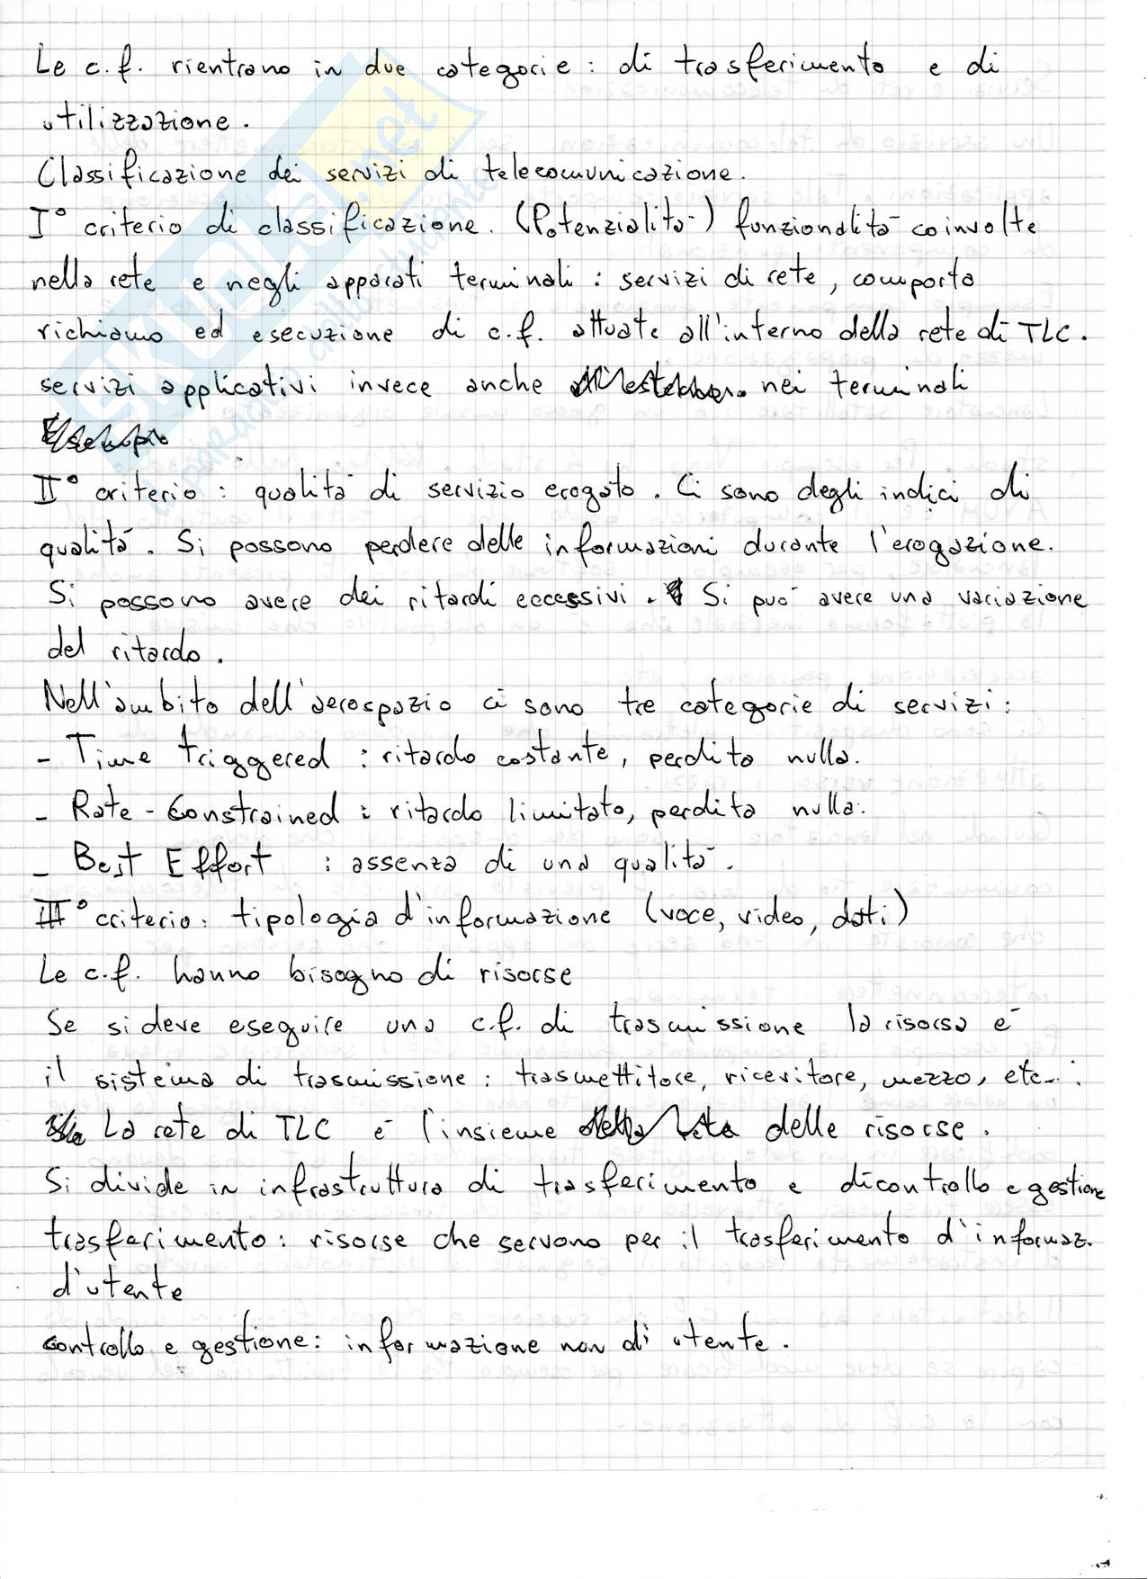 Le c.f. rientrano in due categorie: di trasferimento e di
utilizzazione.
Classificazione dei servizi di telecomunicazione.
I° criterio di classificazione. (Potenzialità) funzionalità coinvolte
nella rete e negli apparati terminali: servizi di rete, comporta
richiamo ed esecuzione di c.f. attuate all'interno della rete di TLC.
servizi applicativi invece anche nei terminali
II° criterio: qualità di servizio erogato. Ci sono degli indici di
qualità. Si possono perdere delle informazioni durante l'erogazione.
Si possono avere dei ritardi eccessivi. Si può avere una variazione
del ritardo.
Nell'ambito dell'aerospazio ci sono tre categorie di servizi:
- Time triggered : ritardo costante, perdita nulla.
- Rate-Constrained : ritardo limitato, perdita nulla.
- Best Effort : assenza di una qualità.
III° criterio: tipologia d'informazione (voce, video, dati)
Le c.f. hanno bisogno di risorse
Se si deve eseguire una c.f. di trasmissione la risorsa è
il sistema di trasmissione: trasmettitore, ricevitore, mezzo, etc...
La rete di TLC è l'insieme delle risorse.
Si divide in infrastruttura di trasferimento e di controllo e gestione
trasferimento: risorse che servono per il trasferimento d'informaz.
d'utente
controllo e gestione: informazione non di utente.